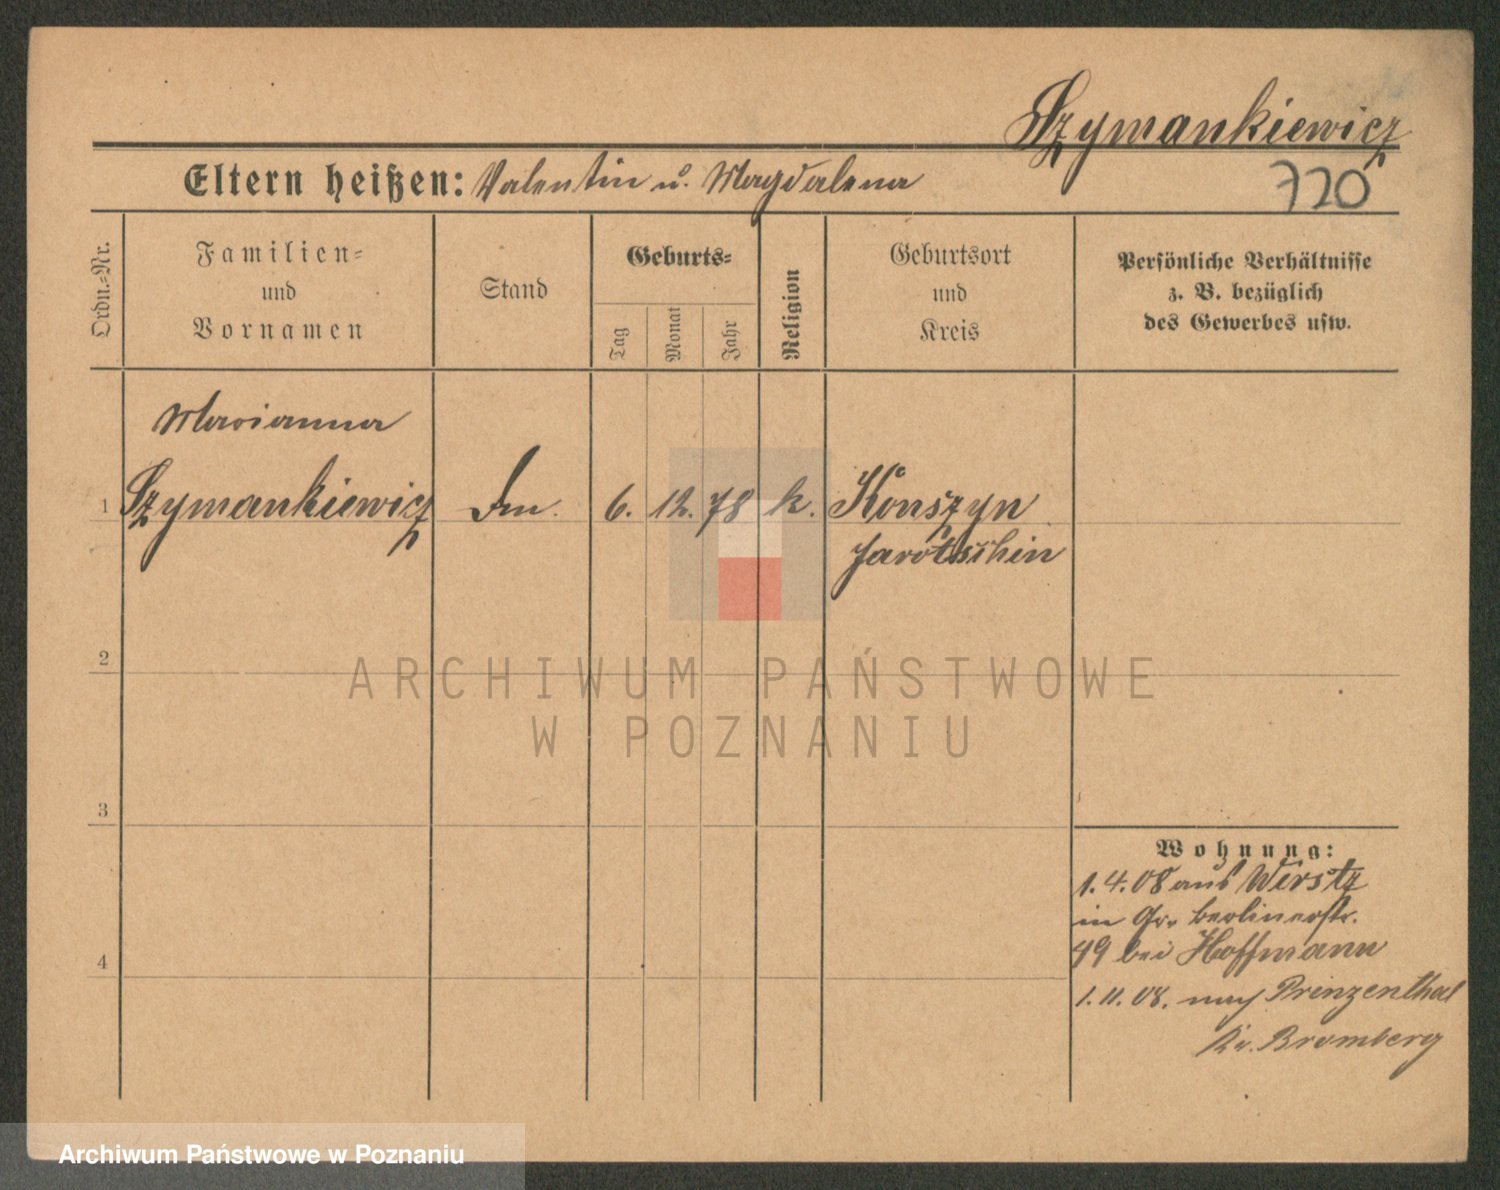 Szymankiewicz
Eltern heißen: Valentin u. Magdalena
720
Ordn.=Nr.
Familien=
und
Vornamen
Stand
Geburts=
Tag
Monat
Jahr
Religion
Geburtsort
und
Kreis
Persönliche Verhältnisse
z. B. bezüglich
des Gewerbes usw.
Marianna
1 Szymankiewicz 6. 12. 78 k. Konszyn
Jarotschin
2
3
4
Wohnung:
1.4.08 aus Wirsitz
in Gr. Berlinerstr.
49 bei Hoffmann
1.11.08. nach Prinzenthal
Kr. Bromberg
ARCHIWUM PAŃSTWOWE
W POZNANIU
Archiwum Państwowe w Poznaniu